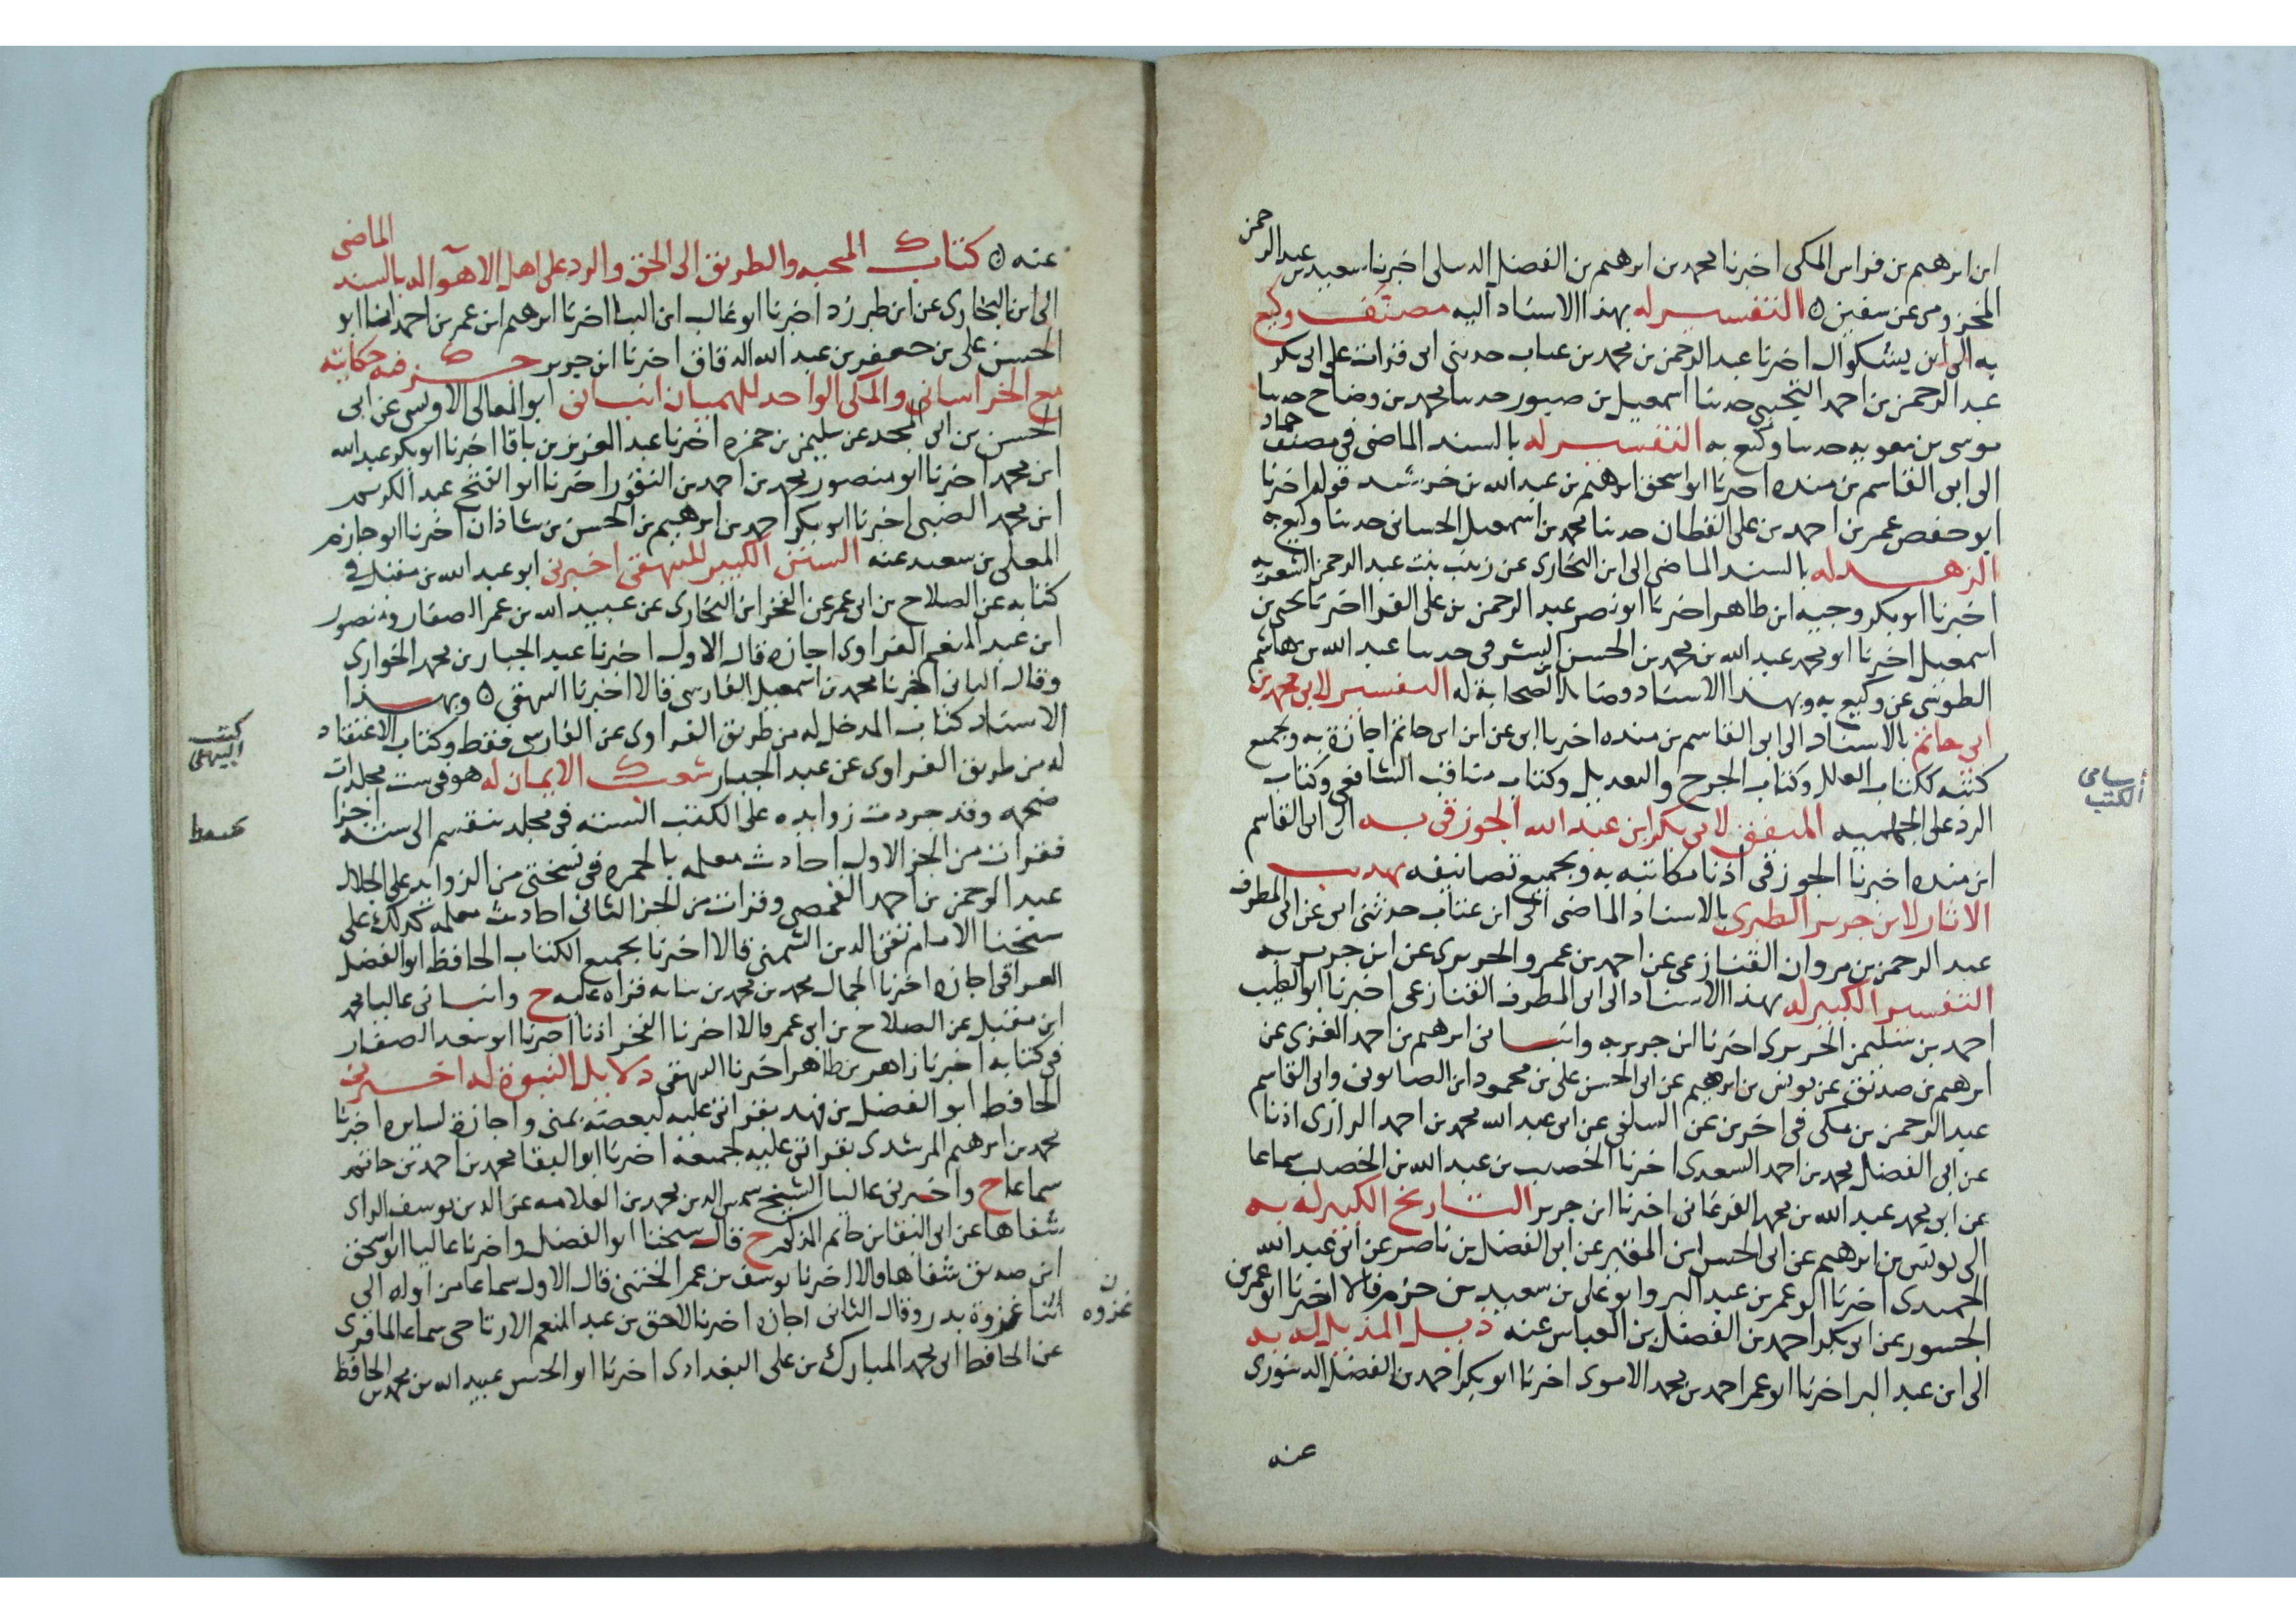 ابن ابرهيم بن فراس المكى اخبرنا محمد بن ابرهيم بن الفضل الديبلى اخبرنا سعيد بن عبد الرحمن
المخزومى عن سفين ه التفسير له بهذا الاسناد اليه مصنف وكيع
به الى ابن بشكوال اخبرنا عبد الرحمن بن محمد بن عتاب حدثنى ابى قرات على ابى بكر
عبد الرحمن بن احمد التجيبى حدثنا اسمعيل بن حدثنا محمد بن وضاح حدثنا
موسى بن معويه حدثنا وكيع به التفسير له بالسند الماضى فى مصنف حماد
الى ابى القاسم بن منده اخبرنا ابو اسحق ابرهيم بن عبد الله بن خرشيد قوله اخبرنا
ابو حفص عمر بن احمد بن على القطان حدثنا محمد بن اسمعيل الحسانى حدثنا وكيع به
الزهد له بالسند الماضى الى ابن البخارى عن زينب بنت عبد الرحمن الشعريه
اخبرنا ابو بكر وجيه ابن طاهر اخبرنا ابو نصر عبد الرحمن بن على الفرا اخبرنا يحيى بن
اسمعيل اخبرنا ابو محمد عبد الله بن محمد بن الحسن الشرقى حدثنا عبد الله بن هاشم
الطوسى عن وكيع به وبهذا الاسناد الصحابة له التفسير لابى محمد بن
ابى حاتم بالاسناد الى ابى القاسم بن منده اخبرنا ابى عن ابن ابى حاتم اجازة به وبجميع
كتبه ككتاب العلل وكتاب الجرح والتعديل وكتاب مناقب الشافعى وكتاب
الرد على الجهميه المتفق لابى بكر ابن عبد الله الجوزقى به الى ابى القاسم
ابن منده اخبرنا الجوزقى اذنا مكاتبه به وبجميع تصانيفه تهذيب
الاثار لابن جرير الطبرى بالاسناد الماضى الى ابن عتاب حدثنى ابى عن ابى المطرف
عبد الرحمن بن مروان القنازعى عن احمد بن عمرو الحريرى عن ابن جرير به
التفسير الكبير له بهذا الاسناد الى ابى المطرف القنازعى اخبرنا ابو الطيب
احمد بن سليمن الحريرى اخبرنا ابن جرير به وانبانى ابرهيم بن احمد الغزى عن
ابرهيم بن صديق عن يونس بن ابرهيم عن ابى الحسن على بن محمود ابن الصابونى وابى القاسم
عبد الرحمن بن مكى فى اخرين عن السلفى عن ابى عبد الله محمد بن احمد الرازى اذنا
عن ابى الفضل محمد بن احمد السعدى اخبرنا الخصيب بن عبد الله بن الخصيب سماعا
عن ابى محمد عبد الله بن محمد الفرغانى اخبرنا ابن جرير التاريخ الكبير له به
الى يونس بن ابرهيم عن ابى الحسن ابن المقير عن ابى الفضل بن ناصر عن ابى عبد الله
الحميدى اخبرنا ابو عمر بن عبد البر وابو على بن سعيد بن حزم قالا اخبرنا ابو عمر بن
الجسور عن ابى بكر احمد بن الفضل بن العباس عنه ذيل المذيل له به
الى ابن عبد البر اخبرنا ابو عمر احمد بن محمد الاموى اخبرنا ابو بكر احمد بن الفضل الدينورى
عنه
اسامى
الكتب
عنه ه كتاب المحبه والطريق الى الحق والرد على اهل الاهوا له بالسند الماضى
الى ابن البخارى عن ابن طبرزد اخبرنا ابو غالب ابن البنا اخبرنا ابرهيم ابن عمر بن احمد انبا ابو
الحسن على بن جعفر بن عبد الله الدقاق اخبرنا ابن جرير جزء فيه حكايته
مع الخراسانى والمكى الواجد للهميان انبانى ابو المعالى الاويسى عن ابى
الحسن بن ابى المجد عن سليمن بن حمزه اخبرنا عبد العزيز بن باقا اخبرنا ابو بكر عبد الله
ابن محمد اخبرنا ابو منصور محمد بن احمد بن النقور اخبرنا ابو الفتح عبد الكريم
ابن محمد الضبى اخبرنا ابو بكر احمد بن ابرهيم بن الحسن بن شاذان اخبرنا ابو حازم
المعلى بن سعيد عنه السنن الكبير للبيهقى اخبرنى ابو عبد الله بن مقبل فى
كتابه عن الصلاح بن ابى عمر عن الفخر ابن البخارى عن عبيد الله بن عمر الصفار ومنصور
ابن عبد المنعم الفراوى اجازه قال الاول اخبرنا عبد الجبار بن محمد الخوارى
وقال الثانى اخبرنا محمد بن اسمعيل الفارسى قالا اخبرنا البيهقى ه وبهذا
الاسناد كتاب المدخل له من طريق الفراوى عن الفارسى فقط وكتاب الاعتقاد
له من طريق الفراوى عن عبد الجبار شعب الايمان له هو فى ست مجلدات
ضخمه وقد جردت زوايده على الكتب الستة فى مجلد تنقسم الى ستة اجزا
فقرات من الجز الاول احاديث معلمه بالحمره فى نسختى من الزوايد على الجلال
عبد الرحمن بن احمد القمصى وقرات من الجز الثانى احاديث معلمه كذلك على
شيخنا الامام تقى الدين الشمنى قالا اخبرنا بجميع الكتاب الحافظ ابو الفضل
العراقى اجازه اخبرنا الجمال محمد بن محمد بن نباته قراه عليه ح وانبانى عاليا محمد
ابن مقبل عن الصلاح بن ابى عمر قالا اخبرنا الفخر اذنا اخبرنا ابو سعد الصفار
فى كتابه اخبرنا زاهر بن طاهر اخبرنا البيهقى دلايل النبوة له اخبرنى
الحافظ ابو الفضل بن فهد بقراتى عليه لبعضه بمنى واجازة لسايره اخبرنا
محمد بن ابرهيم المرشدى بقراتى عليه لجميعه اخبرنا ابو البقا محمد بن احمد بن حاتم
سماعا ح واخبرنى عاليا الشيخ شمس الدين محمد بن العلامه عز الدين يوسف الرازى
شفاها عن ابى البقا بن حاتم المذكور ح قال شيخنا ابو الفضل واخبرنا عاليا ابو اسحق
ابن صديق شفاها قالا اخبرنا يوسف بن عمر الختنى قال الاول سماعا من اوله الى
اثنا غزوة بدر وقال الثانى اجازه اخبرنا لاحق بن عبد المنعم الارتاحى سماعا لما قرى
عن الحافظ ابى محمد المبارك بن على البغدادى اخبرنا ابو الحسن عبيد الله بن محمد بن الحافظ
كتب
البيهقى
ن
غزوه